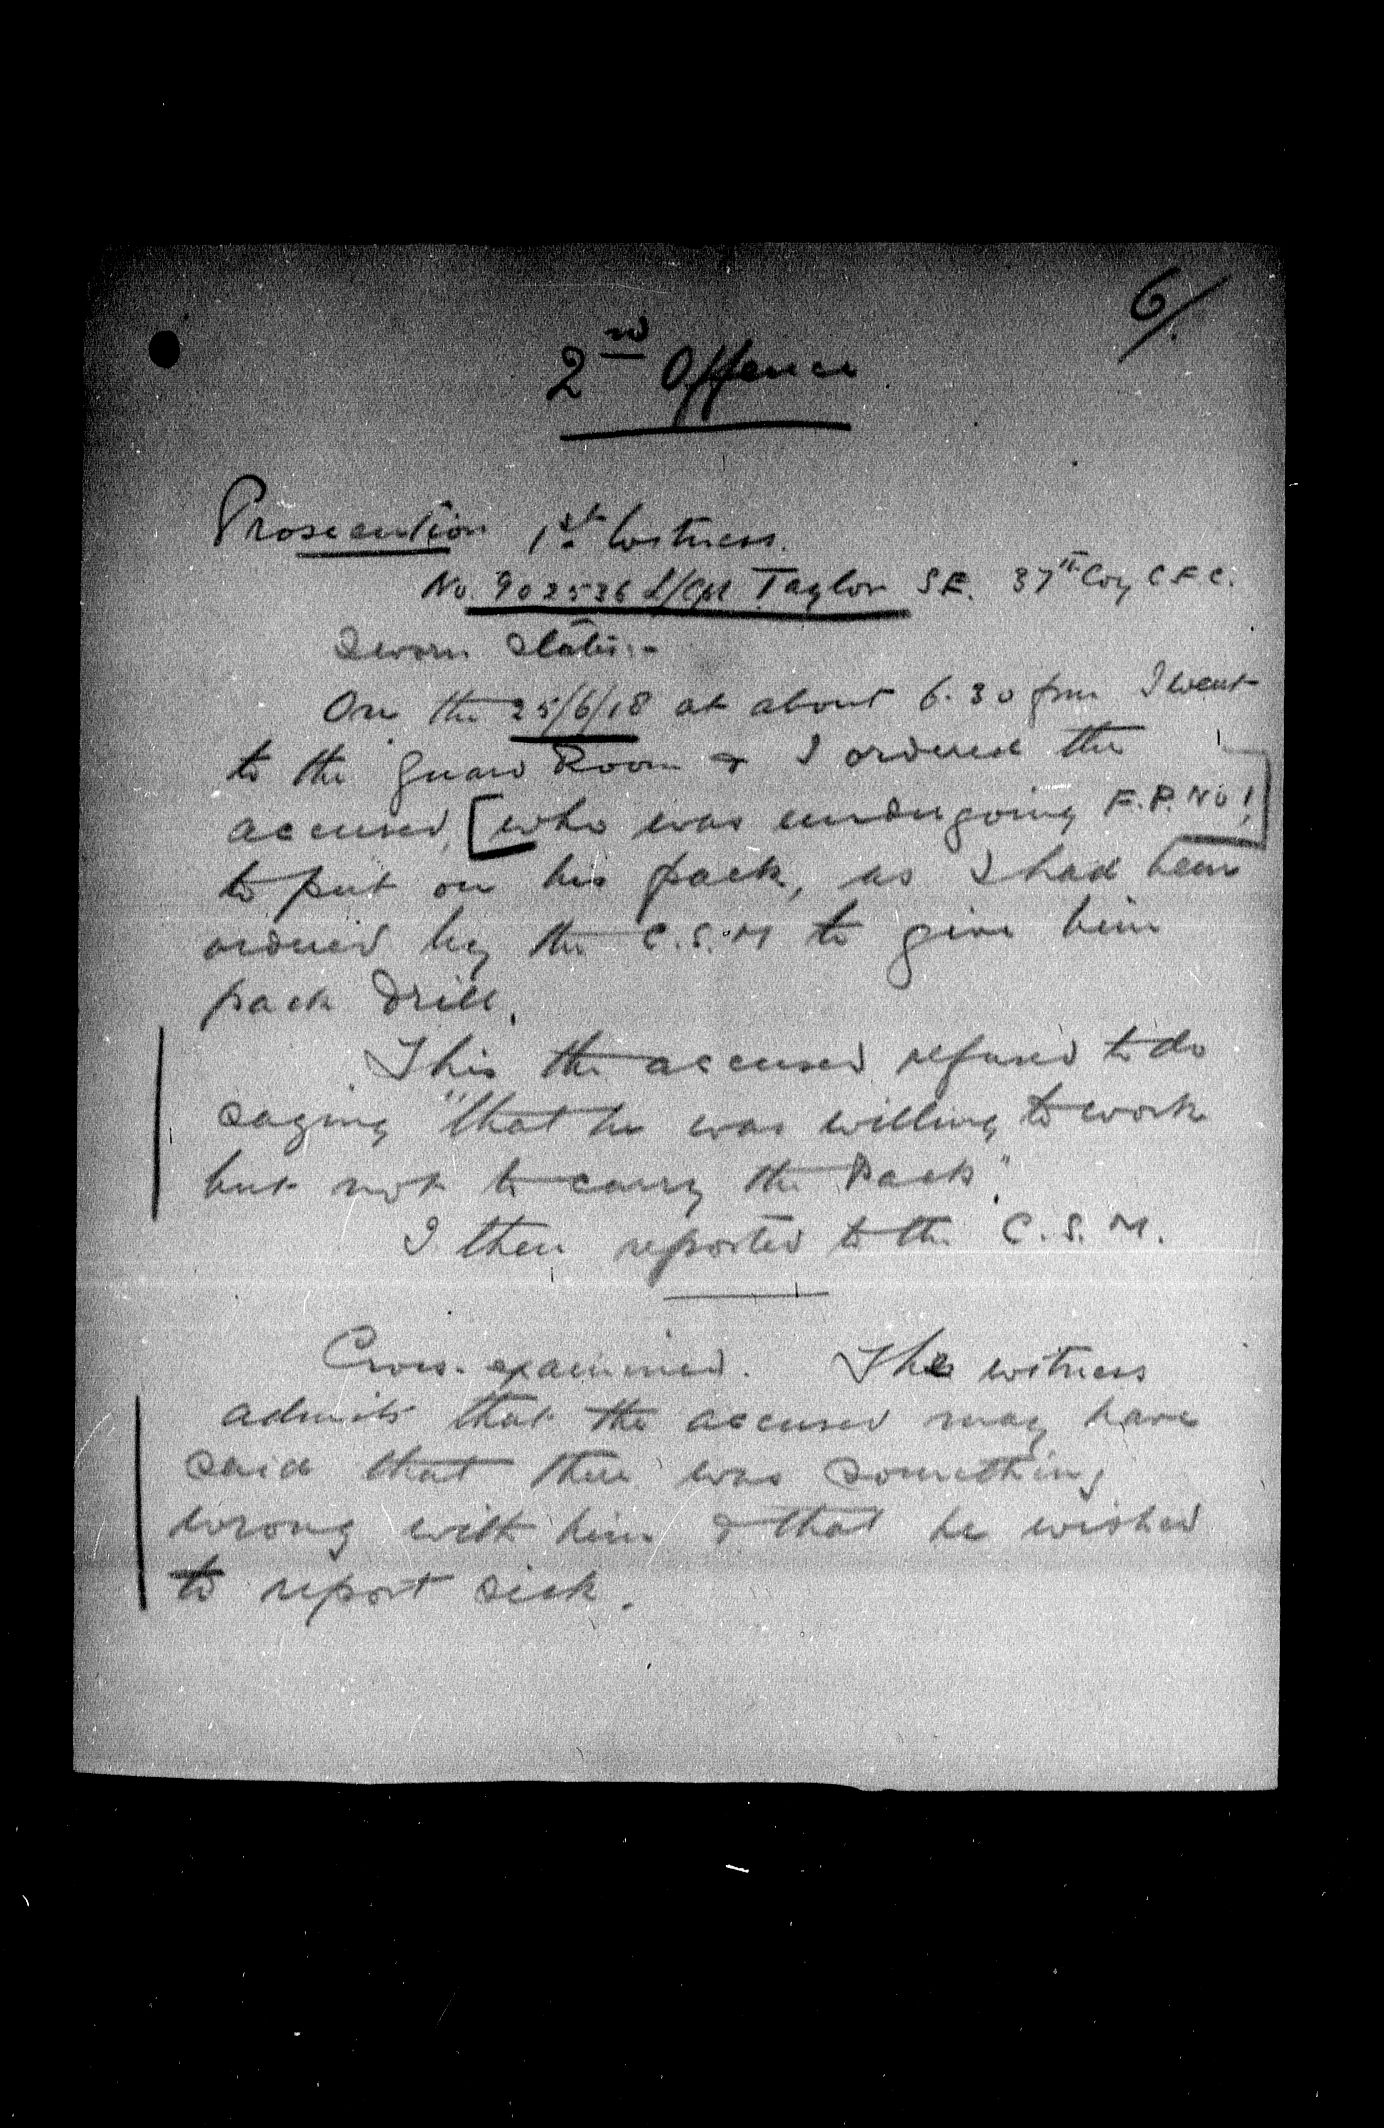 6/.
2nd Offence
Prosecution 1st Witness.
No. 902536 L/Cpl Taylor S.E. 37th Coy C.F.C.
Sworn States:-
On the 25/6/18 at about 6.30 pm I went
to the Guard Room & I ordered the
accused, [who was undergoing F.P. No 1]
to put on his pack, as I had been
ordered by the C.S.M to give him
pack drill.
This the accused refused to do
saying "that he was willing to work
but not to carry the Pack".
I then reported to the C.S.M.
Cross-examined. The witness
admits that the accused may have
said that there was something
wrong with him & that he wished
to report sick.